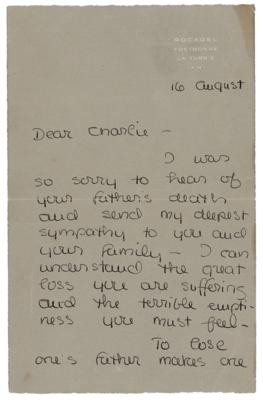 ROCAGEL
16 August
Dear Charlie -
I was
so sorry to hear of
your father's death
and send my deepest
sympathy to you and
your family - I can
understand the great
loss you are suffering
and the terrible empti-
ness you must feel-
To lose
one's father makes one